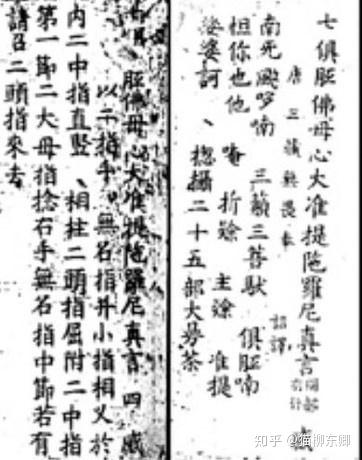 七俱胝佛母心大准提陁羅尼真言
唐三藏無畏奉 詔譯
南无颯哆喃 三藐三菩馱 俱胝喃
怛你也他 唵 折隸 主隸 准提
娑婆訶、揔攝二十五部大曼荼
胝佛母心大准提陁羅尼真言四
以二指手、無名指并小指相叉於
內二中指直豎、相柱二頭指屈附二中指
第一節二大母指捻右手無名指中節若有
請召二頭指來去
知乎 @猫柳东卿